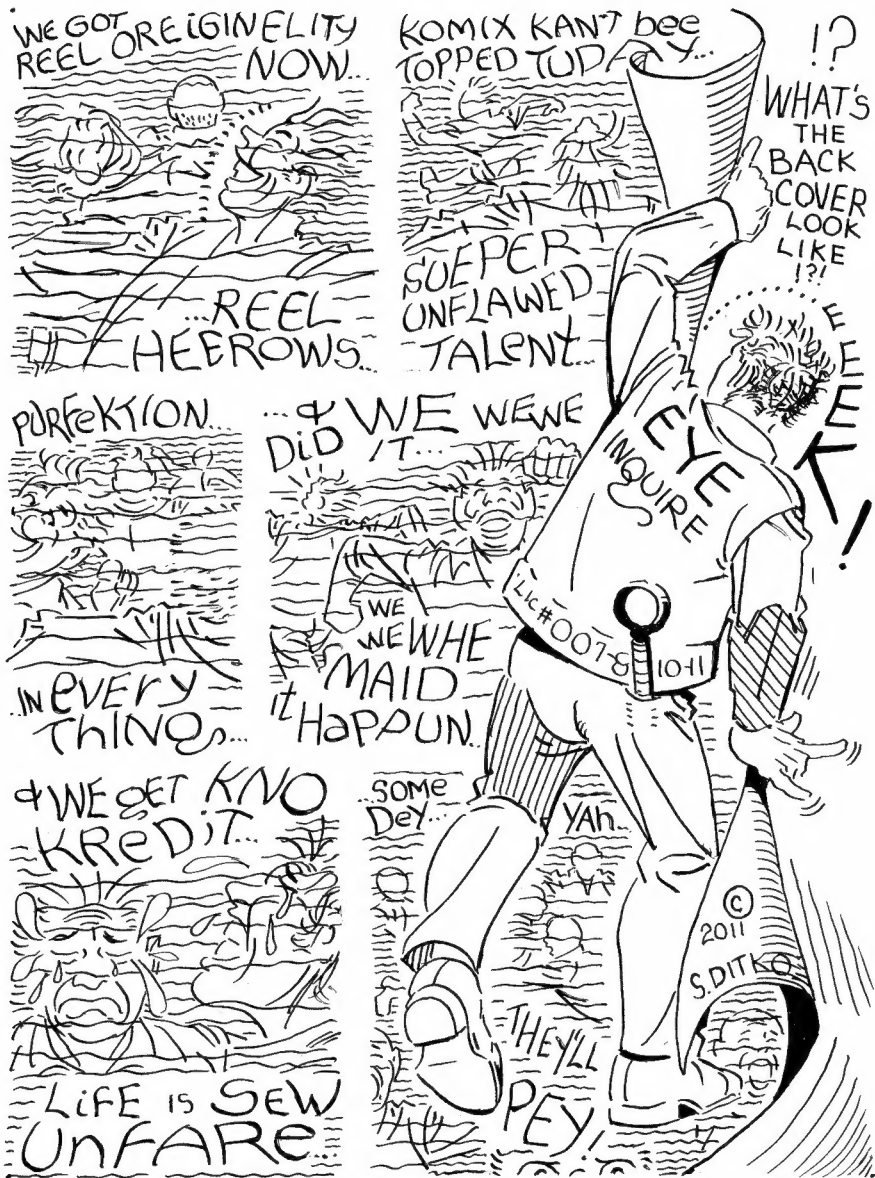 WE GOT
REEL OREiGINELITY
NOW...
...REEL
HEEROWS...
KOMIX KAN'T bee
TOPPED TUDAY...
SUEPER
UNFLAWED
TALeNT...
!?
WHAT'S
THE
BACK
COVER
LOOK
LIKE
!?!
EEEEK!
PURFeKTION...
...IN eVERY
ThING...
...& WE WEWE
DiD IT...
WE
WE WHE
MAID
it HaPPUN...
EYE
INQUIRE
LIC # 007-8 10-11
& WE geT KNO
KReDiT...
LiFE IS SEW
UnFARe...
...SOMe
DeY...
YAh...
THEY'LL
PEY!
©
2011
S.DITKO